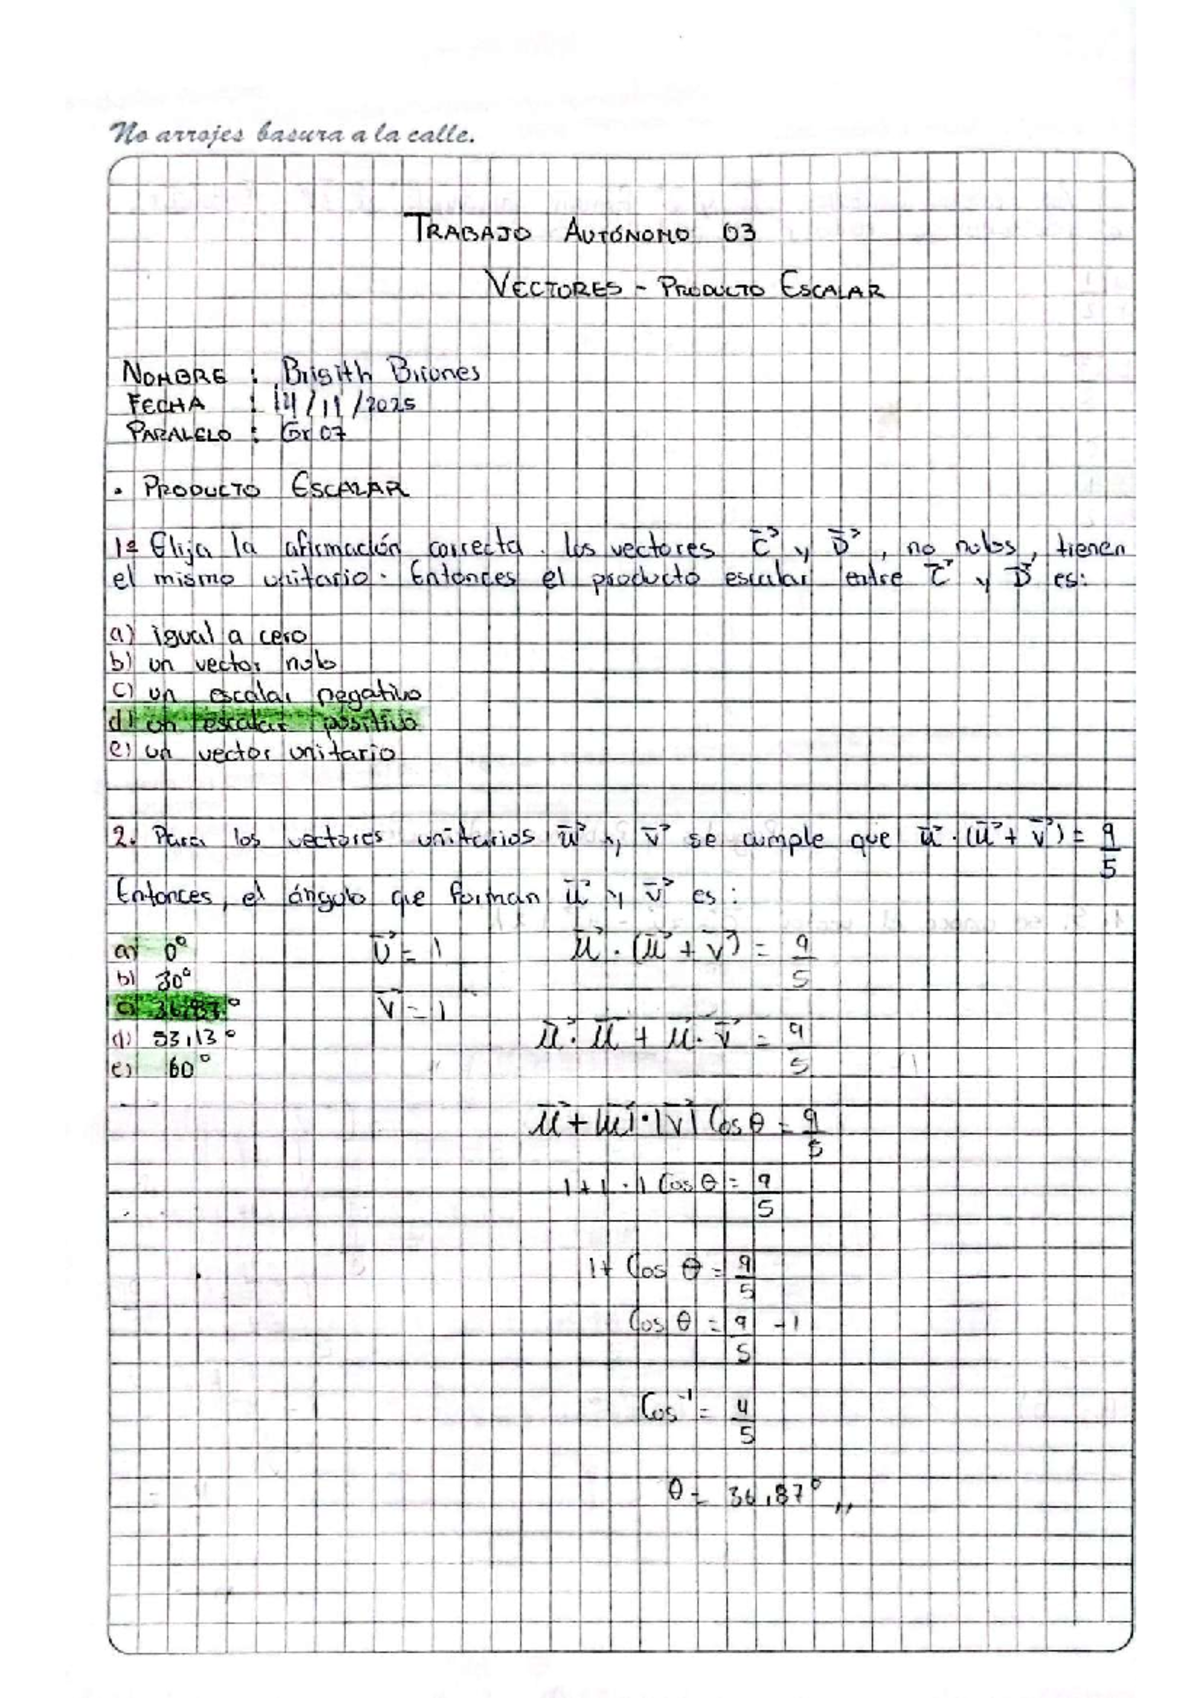 No arrojes basura a la calle.
TRABAJO AUTÓNOMO 03
VECTORES - PRODUCTO ESCALAR
NOMBRE : Brigith Briones
FECHA : 14/11/2025
PARALELO : Gr 07
• PRODUCTO ESCALAR
1ª Elija la afirmación correcta. los vectores C⃗ y D⃗, no nulos, tienen
el mismo unitario. Entonces el producto escalar entre C⃗ y D⃗ es:
a) igual a cero
b) un vector nulo
c) un escalar negativo
d) un escalar positivo
e) un vector unitario
2. Para los vectores unitarios u⃗ y v⃗ se cumple que u⃗ · (u⃗ + v⃗) = 9/5
Entonces, el ángulo que forman u⃗ y v⃗ es:
a) 0° U⃗ = 1 u⃗ · (u⃗ + v⃗) = 9/5
b) 30°
c) 36,87° V⃗ = 1
d) 53,13° u⃗ · u⃗ + u⃗ · v⃗ = 9/5
e) 60°
u⃗ + |u⃗| · |v⃗| Cos θ = 9/5
1 + 1 · 1 Cos θ = 9/5
1 + Cos θ = 9/5
Cos θ = 9/5 - 1
Cos⁻¹ = 4/5
θ = 36,87° ,,